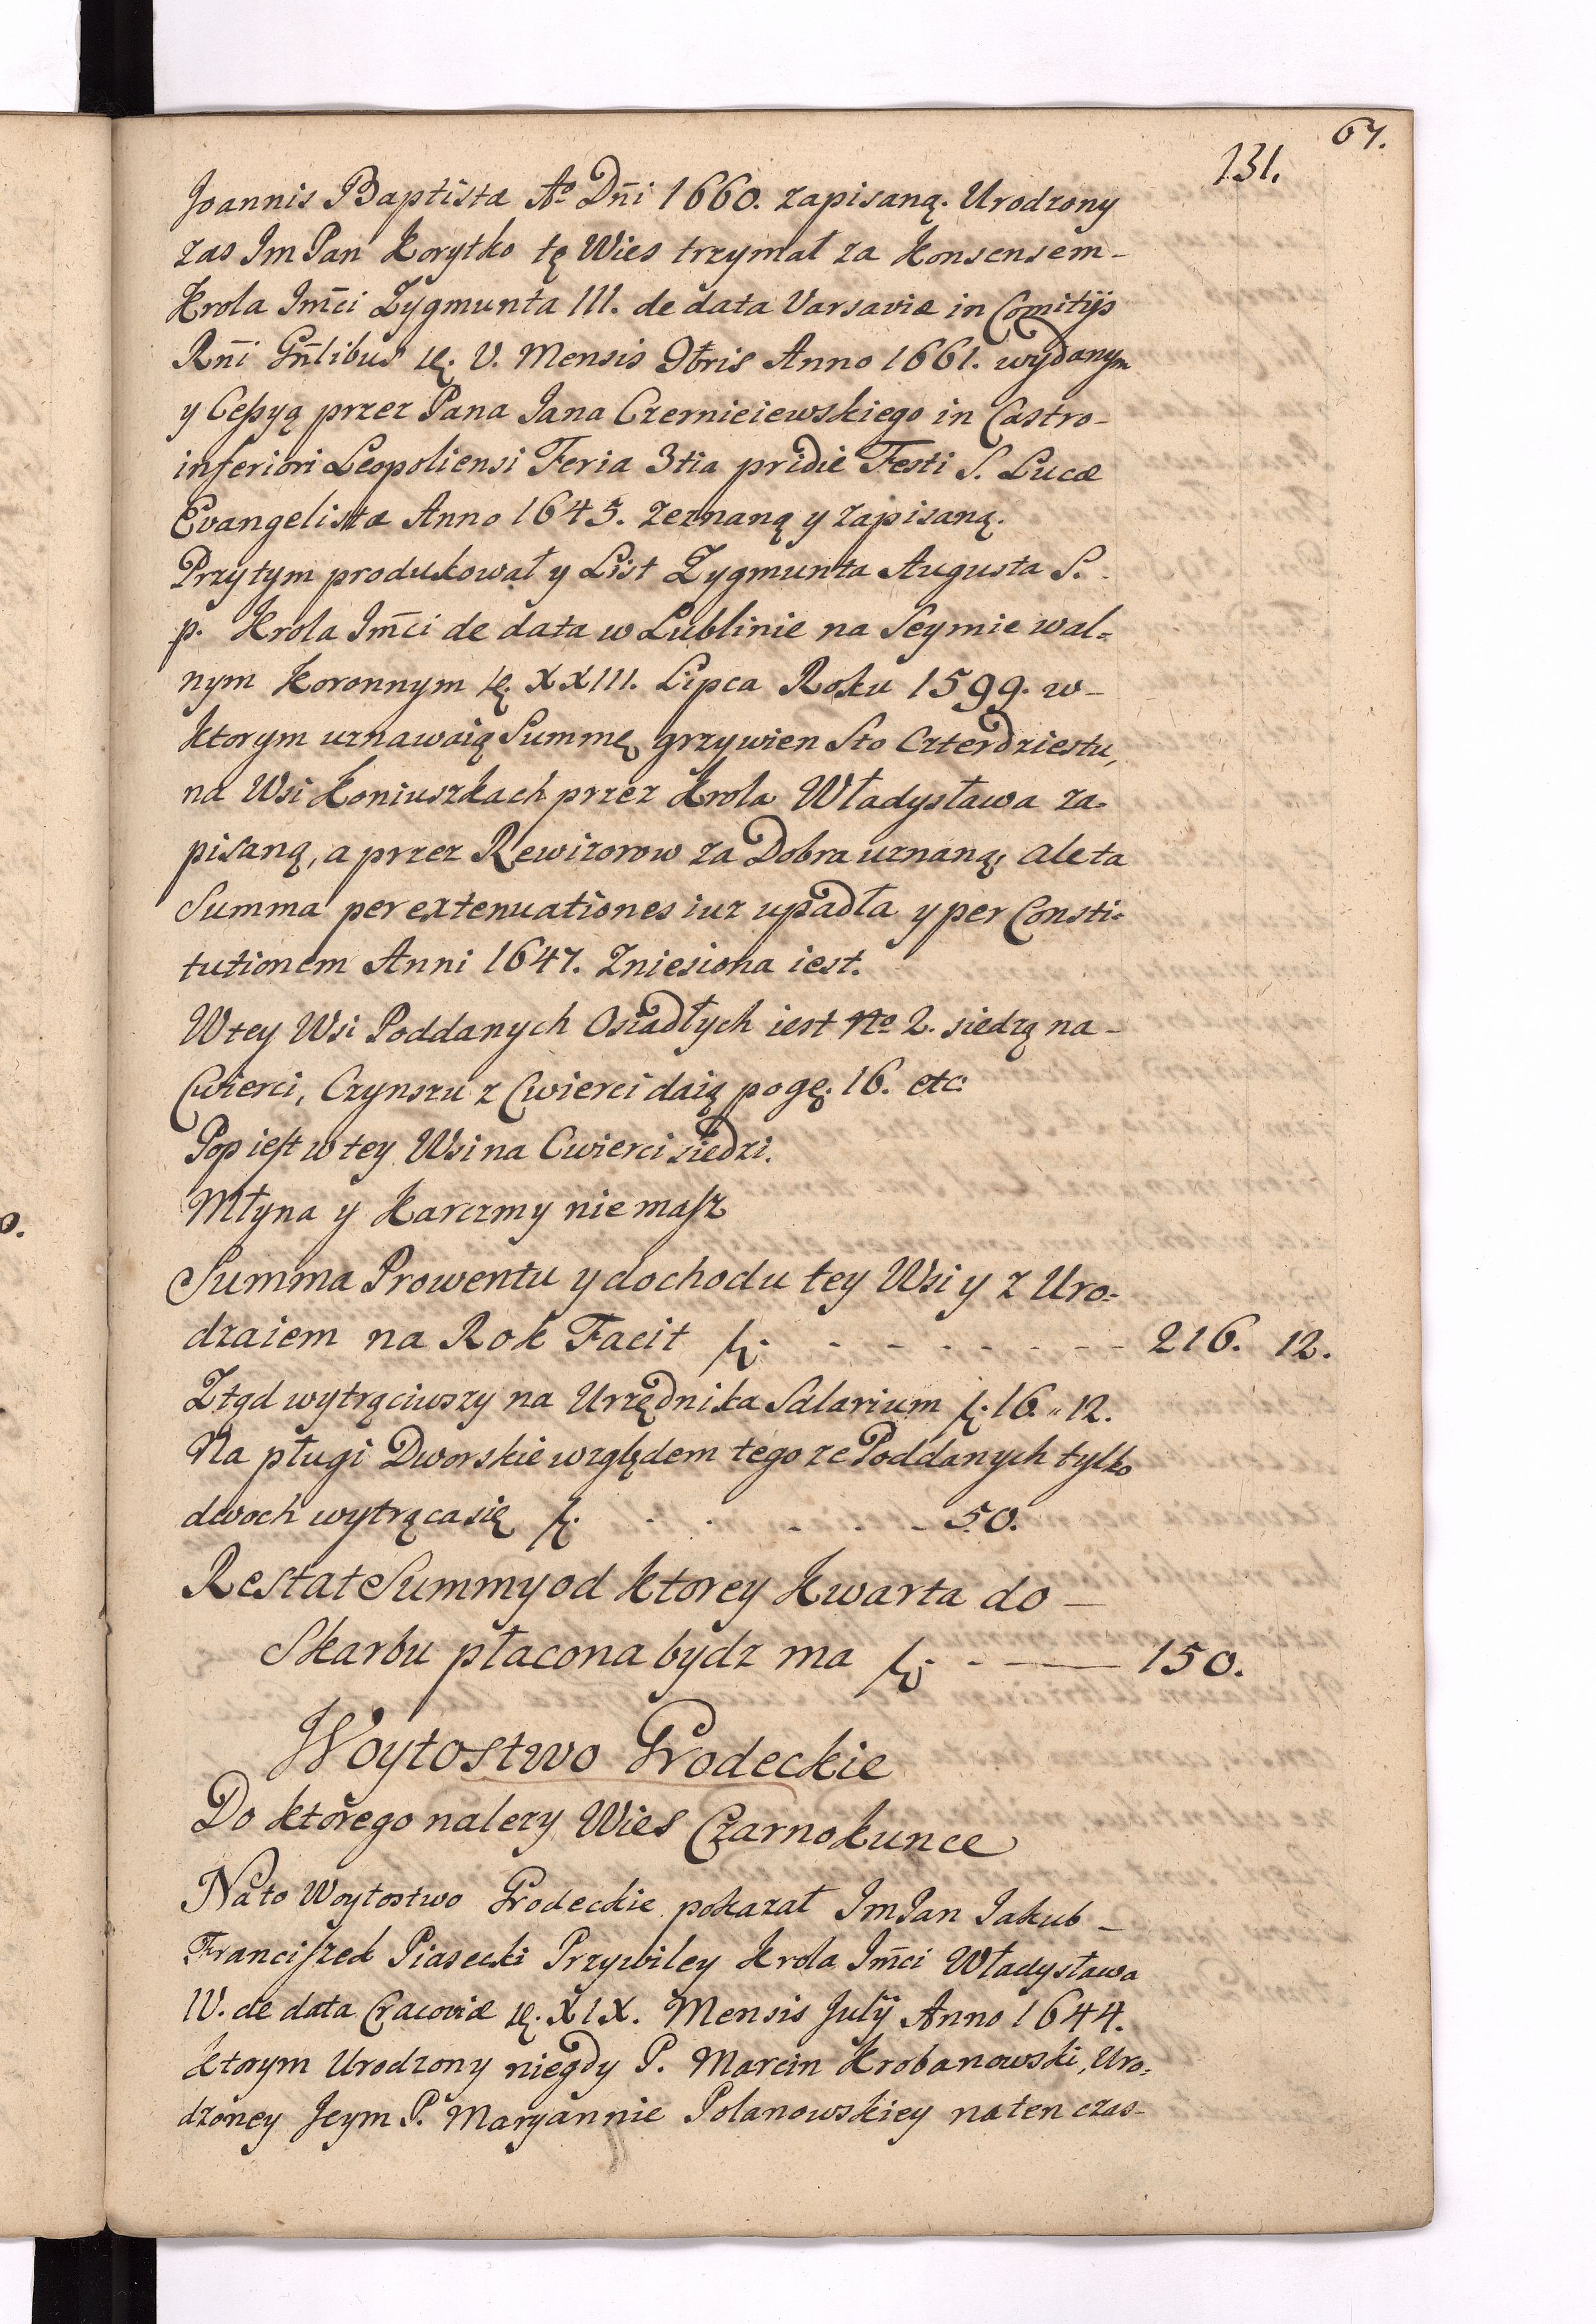 67.
131.
Joannis Baptistæ Aº Dn̄i 1660. zapisaną. Urodzony
zas Jm Pan Korytko tę Wies trzymał za Konsensem-
Krola Jm̄ci Zygmunta III. de data Varsaviæ in Comitijs
Rn̄i Gn̄libus V. Mensis 9bris Anno 1661. wydanym
y Ceßyą przez Pana Jana Czernieiewskiego in Castro-
inferiori Leopoliensi Feria 3tia pridie Festi S. Lucæ
Evangelistæ Anno 1645. zeznaną y zapisaną.
Przytym produkował y List Zygmunta Augusta S.
p. Krola Jm̄ci de data w Lublinie na Seymie wal=
nym Koronnym XXIII. Lipca Roku 1599. w-
ktorym uznawaią Summę grzywien Sto Czterdziestu,
na Wsi Koniuszkach przez Krola Władysława za-
pisaną, a przez Rewizorow za Dobra uznaną, ale ta
Summa per extenuationes iuz upadła y per Consti-
tutionem Anni 1647. Zniesiona iest.
W tey Wsi Poddanych Osiadłych iest Nº 2. siedzą na-
Cwierci, Czynszu z Cwierci daią po gę. 16. etc:
Pop iest w tey Wsi na Cwierci siedzi.
Młyna y Karczmy nie masz
Summa Prowentu y dochodu tey Wsi y z Uro=
dzaiem na Rok Facit f. - - - - - - 216. 12.
Ztąd wytrąciwszy na Urzędnika Salarium f. 16. „ 12.
Na pługi Dworskie względem tego ze Poddanych tylko
dwoch wytrąca się f. - - - - - 50.
Restat Summy od ktorey Kwarta do -
Skarbu płacona bydz ma f. - — 150.
Woytostwo Grodeckie
Do ktorego nalezy Wies Czarnokunce
Na to Woytostwo Grodeckie pokazał Jm Pan Jakub -
Franciszek Piasecki Przywiley Krola Jm̄ci Władysława
IV. de data Cracoviæ XIX. Mensis Julij Anno 1644.
ktorym Urodzony niegdy P. Marcin Krobanowski, Uro-
dzoney Jeym P. Maryannie Polanowskiey na ten czas-